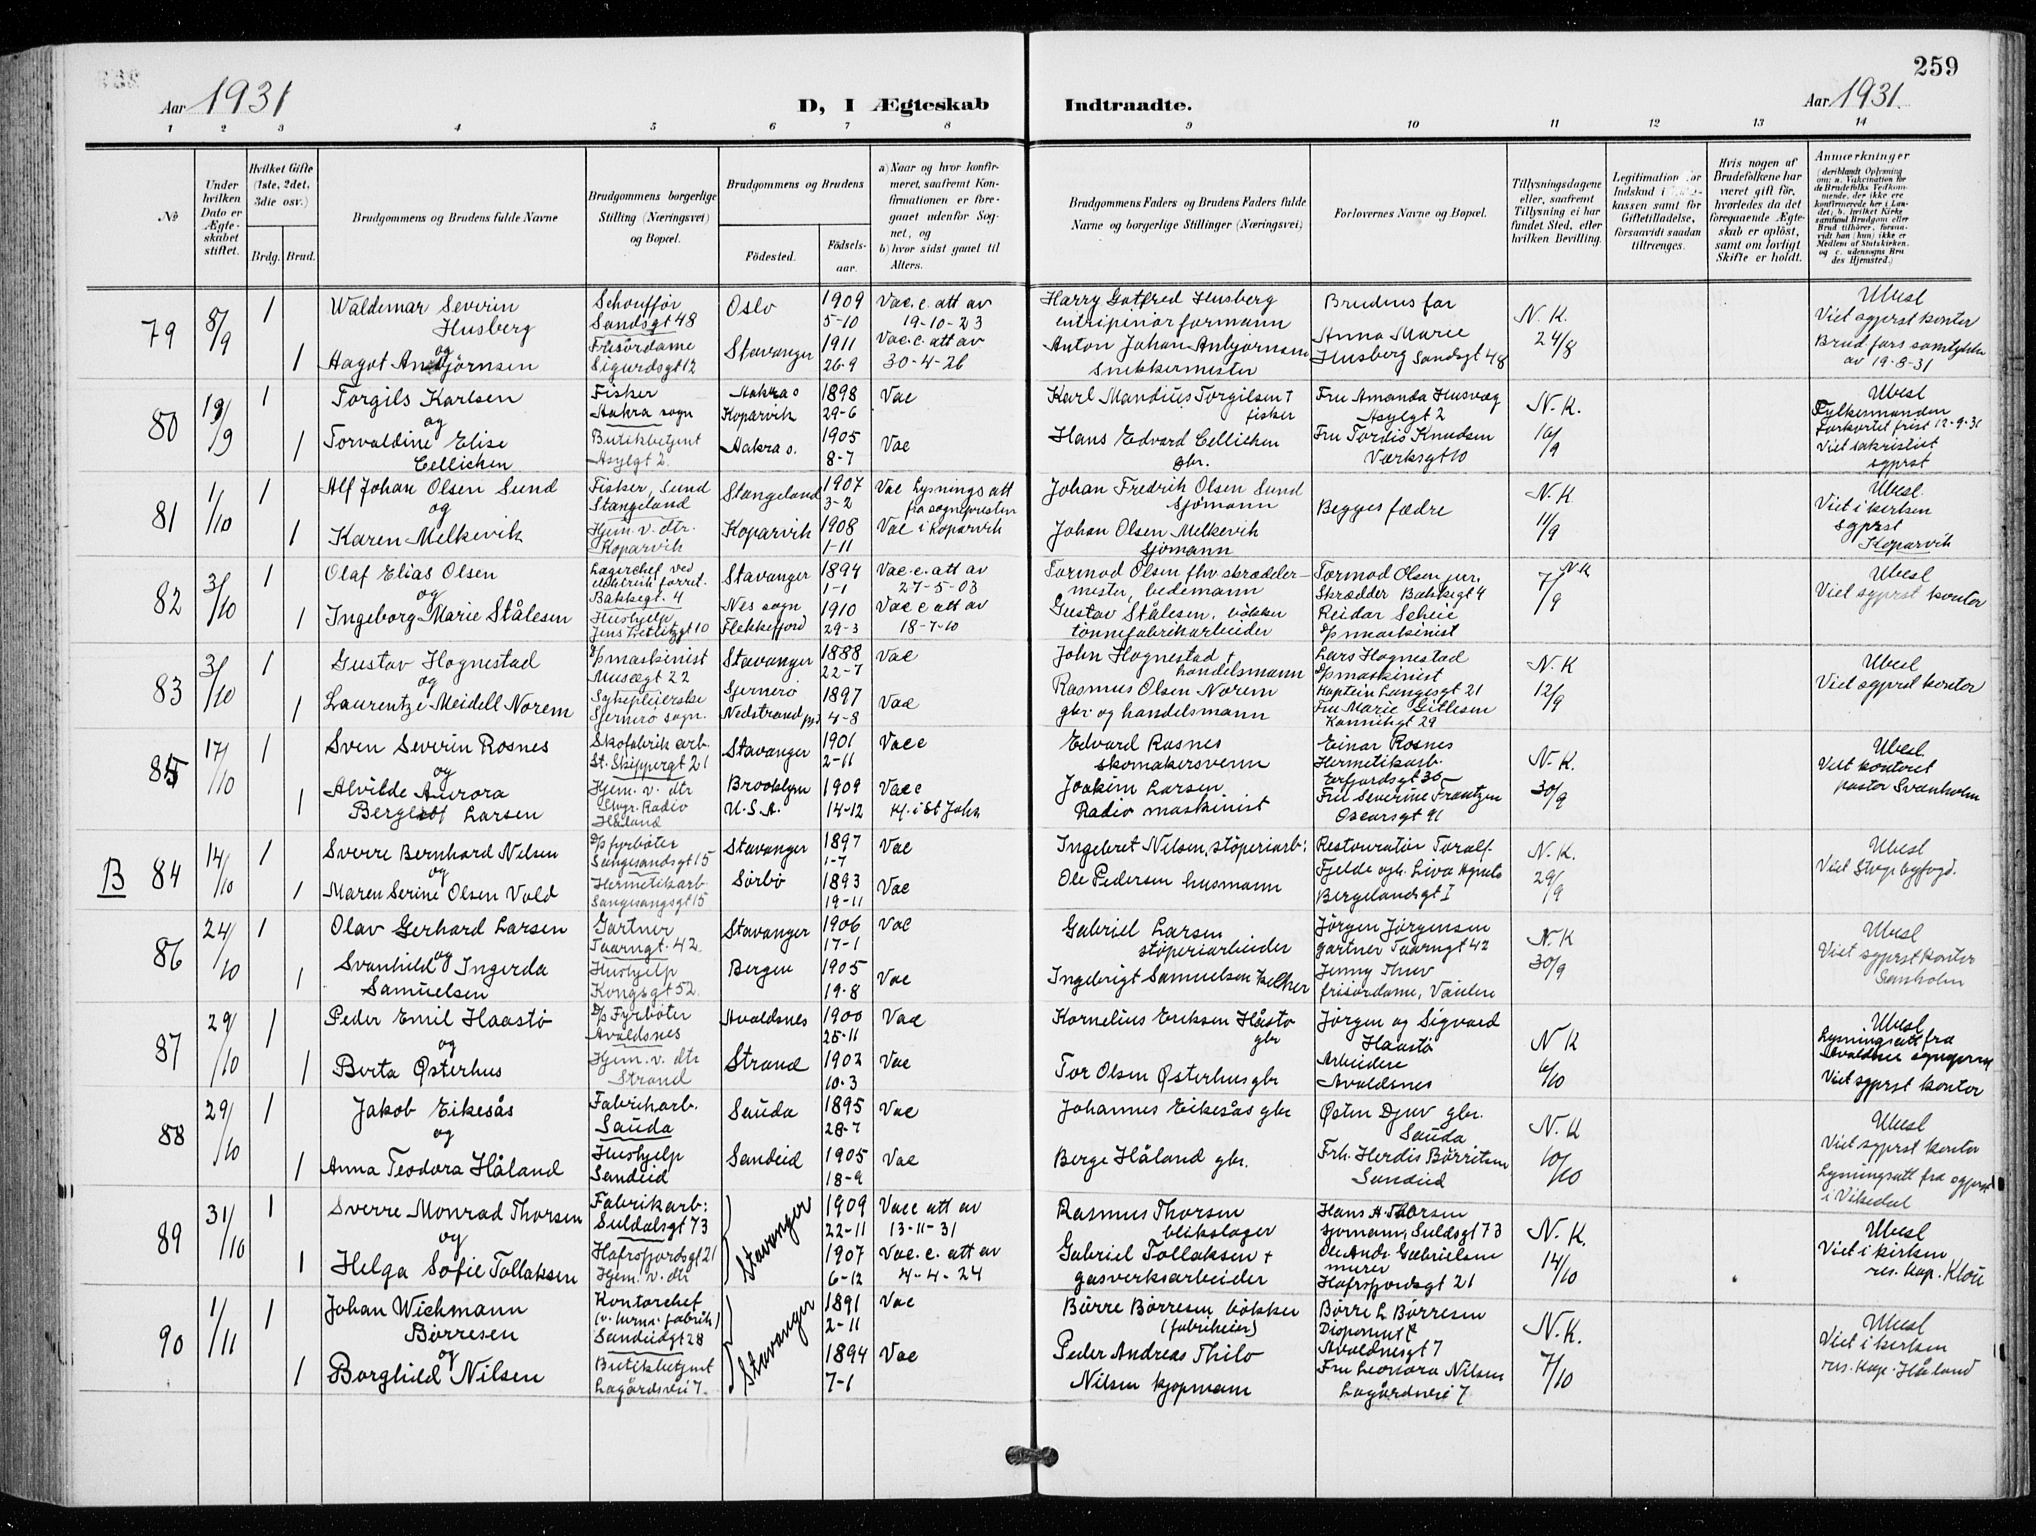 259
Aar 1931
D, I Ægteskab
Indtraadte.
Aar 1931.
1 2 3 4 5 6 7 8 9 10 11 12 13 14
No
Under hvilken Dato er Ægteskabet stiftet.
Hvilket Gifte (1ste, 2det, 3die osv.)
Brdg. Brud.
Brudgommens og Brudens fulde Navne
Brudgommens borgerlige Stilling (Næringsvei) og Bopæl.
Brudgommens og Brudens
Fødested.
Fødselsaar.
a) Naar og hvor konfirmeret, saafremt Konfirmationen er foregaaet udenfor Sognet, og
b) hvor sidst gaaet til Alters.
Brudgommens Faders og Brudens Faders fulde Navne og borgerlige Stillinger (Næringsvei)
Forlovernes Navne og Bopæl.
Tillysningsdagene eller, saafremt Tillysning ei har fundet Sted, efter hvilken Bevilling.
Legitimation for Indskud i Enkekassen samt for Giftetilladelse, forsaavidt saadan tiltrænges.
Hvis nogen af Brudefolkene har været gift før, hvorledes da det foregaaende Ægteskab er opløst, samt om lovligt Skifte er holdt.
Anmærkninger
(deriblandt Oplysning om: a. Vakcination for de Brudefolks Vedkommende, der ikke ere konfirmerede her i Landet; b. hvilket Kirkesamfund Brudgom eller Brud tilhører, forsaavidt han (hun) ikke er Medlem af Statskirken, og c. udensogns Brudes Hjemsted.)
79
8/9
1
Waldemar Severin
Husberg
og
1
Hagot Anbjørnsen
Schouffør
Sandsgt 48
Frisørdame
Sigurdsgt 12
Oslo
Stavanger
1909
5-10
1911
26-9
Vac. c. att av
19-10-23
Vac. c. att av
30-4-26
Harry Gotfred Husberg
entripinør formann
Anton Johan Anbjørnsen
Snekkermester
Brudens far
Anna Marie
Husberg Sandsgt 48
N. K.
24/8
Ubesl
Viet sgprst kontor
Brud fars samtykke
av 19-8-31
80
19/9
1
Torgils Karlsen
og
1
Torvaldine Elise
Cellichen
Fisker
Aakra sogn
Butikbetjent
Asylgt 2.
Aakra s
Koparvik
Aakra s.
1898
29-6
1905
8-7
Vac
Vac
Karl Mandius Torgilsen †
fisker
Hans Edvard Cellichen
gbr.
Fru Amanda Husvæg
Asylgt 2
Fru Tordis Knudsen
Værksgt 10
N. K.
10/9
Ubesl
Fylkesmanden
Forkortet frist 12-9-31
Viet sakristiet
sgprst
81
1/10
1
Alf Johan Olsen Sund
og
1
Karen Melkevik
Fisker, Sund
Stangeland
Hjem. v. dtr.
Koparvik
Stangeland
Koparvik
1907
3-2
1908
1-11
Vac Lysnings att
fra sognepresten
Vac i Koparvik
Johan Fredrik Olsen Sund
Sjømann
Johan Olsen Melkevik
Sjømann
Begges fædre
N. K
11/9
Ubesl.
Viet i kirken
sgprst
Koparvik
82
3/10
1
Olaf Elias Olsen
og
1
Ingeborg Marie Stålesen
Lagerchef ved
elektrisk forret.
Bakkegt. 4
Hushjelp
Jens Zetlitzgt 10
Stavanger
Nes sogn
Flekkefjord
1894
1-1
1910
29-3
Vac. c. att av
27-5-03
Vac c att av
18-7-10
Tormod Olsen fhv skrædder-
mester, bedemann
Gustav Stålesen, bøkker
tønnefabrikarbeider
Tormod Olsen jur.
Skrædder Bakkegt 4
Reidar Scheie
D/p maskinist
N. K
7/9
Ubesl
Viet sgprst kontor
83
3/10
1
Gustav Hognestad
og
1
Laurentze Meidell Norem
D/p maskinist
Musægt 22
Sykepleierske
Sjernerø sogn.
Stavanger
Sjernerø
Nedstrand pgd
1888
22-7
1897
4-8
Vac
Vac
John Hognestad †
handelsmann
Rasmus Olsen Norem
gbr. og handelsmann
Lars Hognestad
D/p maskinist
Kaptein Langesgt 21
Fru Marie Gitlesen
Kannikgt 29
N. K
12/9
Ubesl
Viet sgprst kontor
85
17/10
1
Sven Severin Rosnes
og
1
Alvilde Aurora
Bergliot Larsen
Skofabrik arb.
St. Skippergt 21
Hjem. v. dtr
Stvgr. Radio
Håland
Stavanger
Brooklyn
U.S.A.
1901
2-11
1909
14-12
Vacc
Vacc
K. i St Joh
Edvard Rosnes
skomakersvenn
Joakim Larsen
Radio maskinist
Einar Rosnes
Hermetikarb.
Erfjordsgt 35
Fru Severine Frantzen
Oscarsgt 91
N. K.
30/9
Ubesl.
Viet kontoret
pastor Svanholm
B
84
14/10
1
Sverre Bernhard Nilsen
og
1
Maren Serine Olsen Vold
D/p fyrbøter
Sangesandsgt 15
Hermetikarb.
Sangesangsgt 15
Stavanger
Sørbø
1897
1-7
1893
19-11
Vac
Vac
Ingebret Nilsen, støperiarb:
Ole Pedersen husmann
Restauratør Toralf
Fjelde
Bergelandsgt I
N. K.
29/9
Ubesl
Viet Stvgr byfogd.
86
24/10
1
Olav Gerhard Larsen
og
1
Svanhild Ingerda
Samuelsen
Gartner
Taarngt. 42
Hushjelp
Kongsgt 52.
Stavanger
Bergen
1906
17-1
1905
19-8
Vac
Vac
Gabriel Larsen
støperiarbeider
Ingebrigt Samuelsen kelner
Jørgen Jørgensen
gartner Taarngt 42
Jenny Thuv
frisørdame, Vaulen
N. K
30/9
Ubesl
Viet sgprst kontor
Svanholm
87
29/10
1
Peder Emil Haastø
og
1
Berta Østerhus
D/p Fyrbøter
Avaldsnes
Hjem. v. dtr
Strand
Avaldsnes
Strand
1900
25-11
1902
10-3
Vac
Vac
Kornelius Eriksen Håstø
gbr
Tor Olsen Østerhus gbr
Jørgen og Sigvard
Haastø
Arbeidere
Avaldsnes
N K
6/10
Ubesl
Lysningsatt fra
Avaldsnes sogneprest
Viet sgprst kontor
88
29/10
1
Jakob Eikesås
og
1
Anna Teodora Håland
Fabrikarb.
Sauda
Hushjelp
Sandeid
Sauda
Sandeid
1895
28-7
1905
18-9
Vac
Vac
Johannes Eikesås gbr
Berge Håland gbr.
Østen Djuv gbr.
Sauda
Frk. Herdis Børritsen
Sandeid
N. K
10/10
Ubesl
Viet sgprst kontor
Lysningsatt fra sgprst
i Vikedal
89
31/10
1
Sverre Monrad Thorsen
og
1
Helga Sofie Tollaksen
Fabrikarb:
Suldalsgt 73
Hafrsfjordsgt 21
Hjem. v. dtr
Stavanger
1909
22-11
1907
6-12
Vacc att av
13-11-31
Vac. c. att av
4-4-24
Rasmus Thorsen
blikslager
Gabriel Tollaksen †
gasverksarbeider
Hans A. Thorsen
sjømann, Suldsgt 73
Ole Ands. Gabrielsen
murer
Hafrsfjordsgt 21
N. K.
14/10
Ubesl
Viet i kirken
res. Kap. Klou
90
1/11
1
Johan Wichmann
Børresen
og
1
Borghild Nilsen
Kontorchef
Sandeidgt 28
Butikbetjent
Lagårdsvei 7.
Stavanger
1891
2-11
1894
7-1
Vac
Vac
Børre Børresen bøkker
(fabrikeier)
Peder Andreas Thilo
Nilsen kjøpmann
Børre L Børresen
Disponent
Avaldsnesgt 7
Fru Leonora Nilsen
Lagårdsvei 7
N. K.
7/10
Ubesl
Viet i kirken
res. Kap. Håland